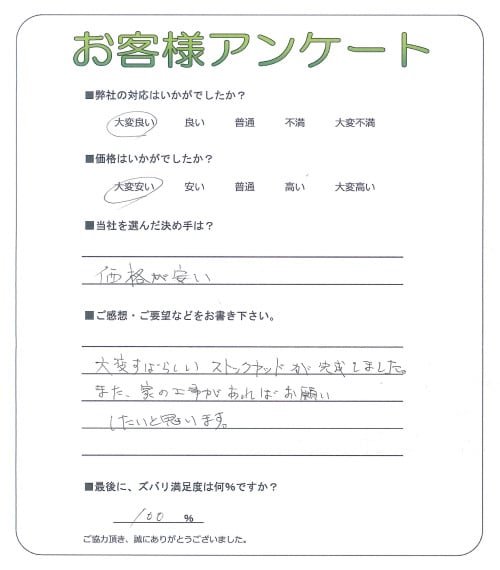 お客様アンケート
■弊社の対応はいかがでしたか？
大変良い 良い 普通 不満 大変不満
■価格はいかがでしたか？
大変安い 安い 普通 高い 大変高い
■当社を選んだ決め手は？
価格が安い
■ご感想・ご要望などをお書き下さい。
大変すばらしい ストックヤッドが完成しました。
また、家の工事があればお願い
したいと思います。
■最後に、ズバリ満足度は何％ですか？
100 ％
ご協力頂き、誠にありがとうございました。